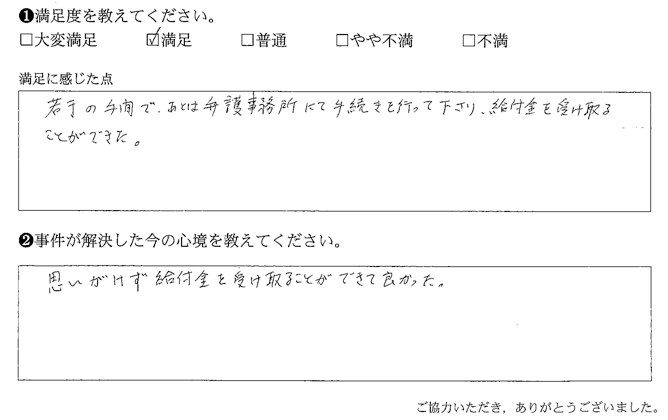 ❶満足度を教えてください。
□大変満足 ☑満足 □普通 □やや不満 □不満
満足に感じた点
若干の手間で、あとは弁護事務所にて手続きを行って下さり、給付金を受け取る
ことができた。
❷事件が解決した今の心境を教えてください。
思いがけず給付金を受け取ることができて良かった。
ご協力いただき、ありがとうございました。